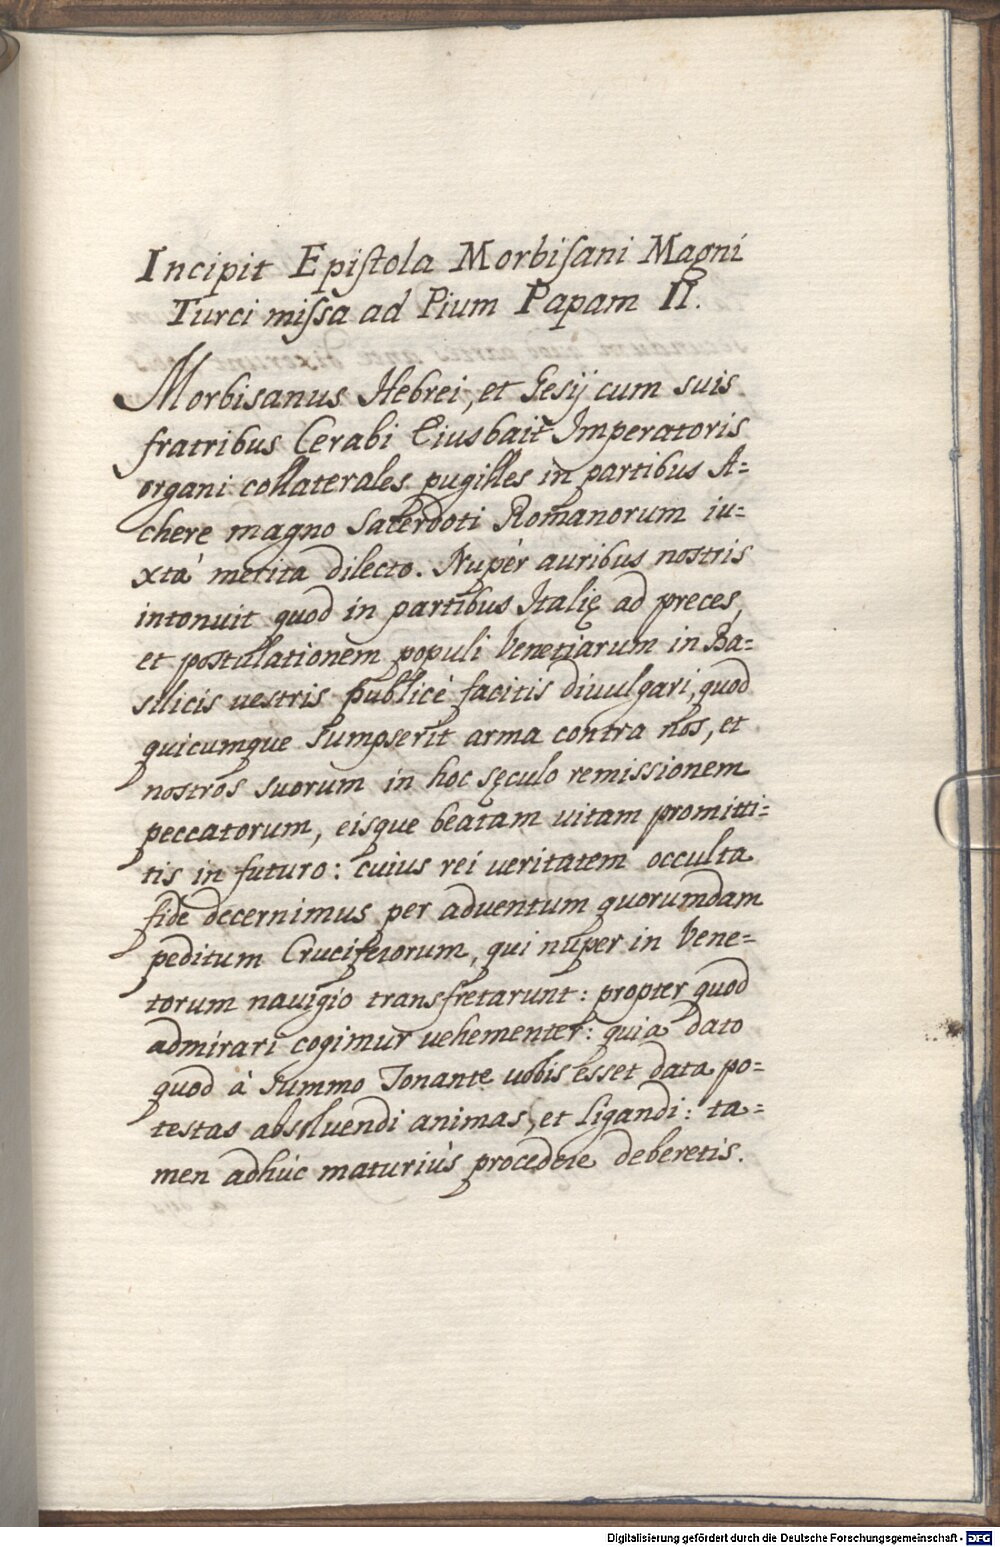 Incipit Epistola Morbisani Magni
Turci missa ad Pium Papam II.
Morbisanus Hebrei, et Gesij cum suis
fratribus Cerabi Eiusbait Imperatoris
organi collaterales pugilles in partibus A=
chere magno Sacerdoti Romanorum iu=
xtà merita dilecto. Nupèr auribus nostris
intonuit quod in partibus Italię ad preces,
et postulationem populi Venetiarum in Ba=
silicis uestris publicè facitis diuulgari, quod
quicumque Sumpserit arma contra nos, et
nostros suorum in hoc sęculo remissionem
peccatorum, eisque beatam uitam promitti=
tis in futuro: cuius rei veritatem occulta
fide decernimus per aduentum quorumdam
peditum Cruciferorum, qui nuper in Vene=
torum nauigio transfretarunt: propter quod
admirari cogimur uehementer: quia dato
quod à Summo Tonante uobis esset data po=
testas absoluendi animas, et ligandi: ta=
men adhùc maturiùs procedere deberetis.
Digitalisierung gefördert durch die Deutsche Forschungsgemeinschaft - DFG